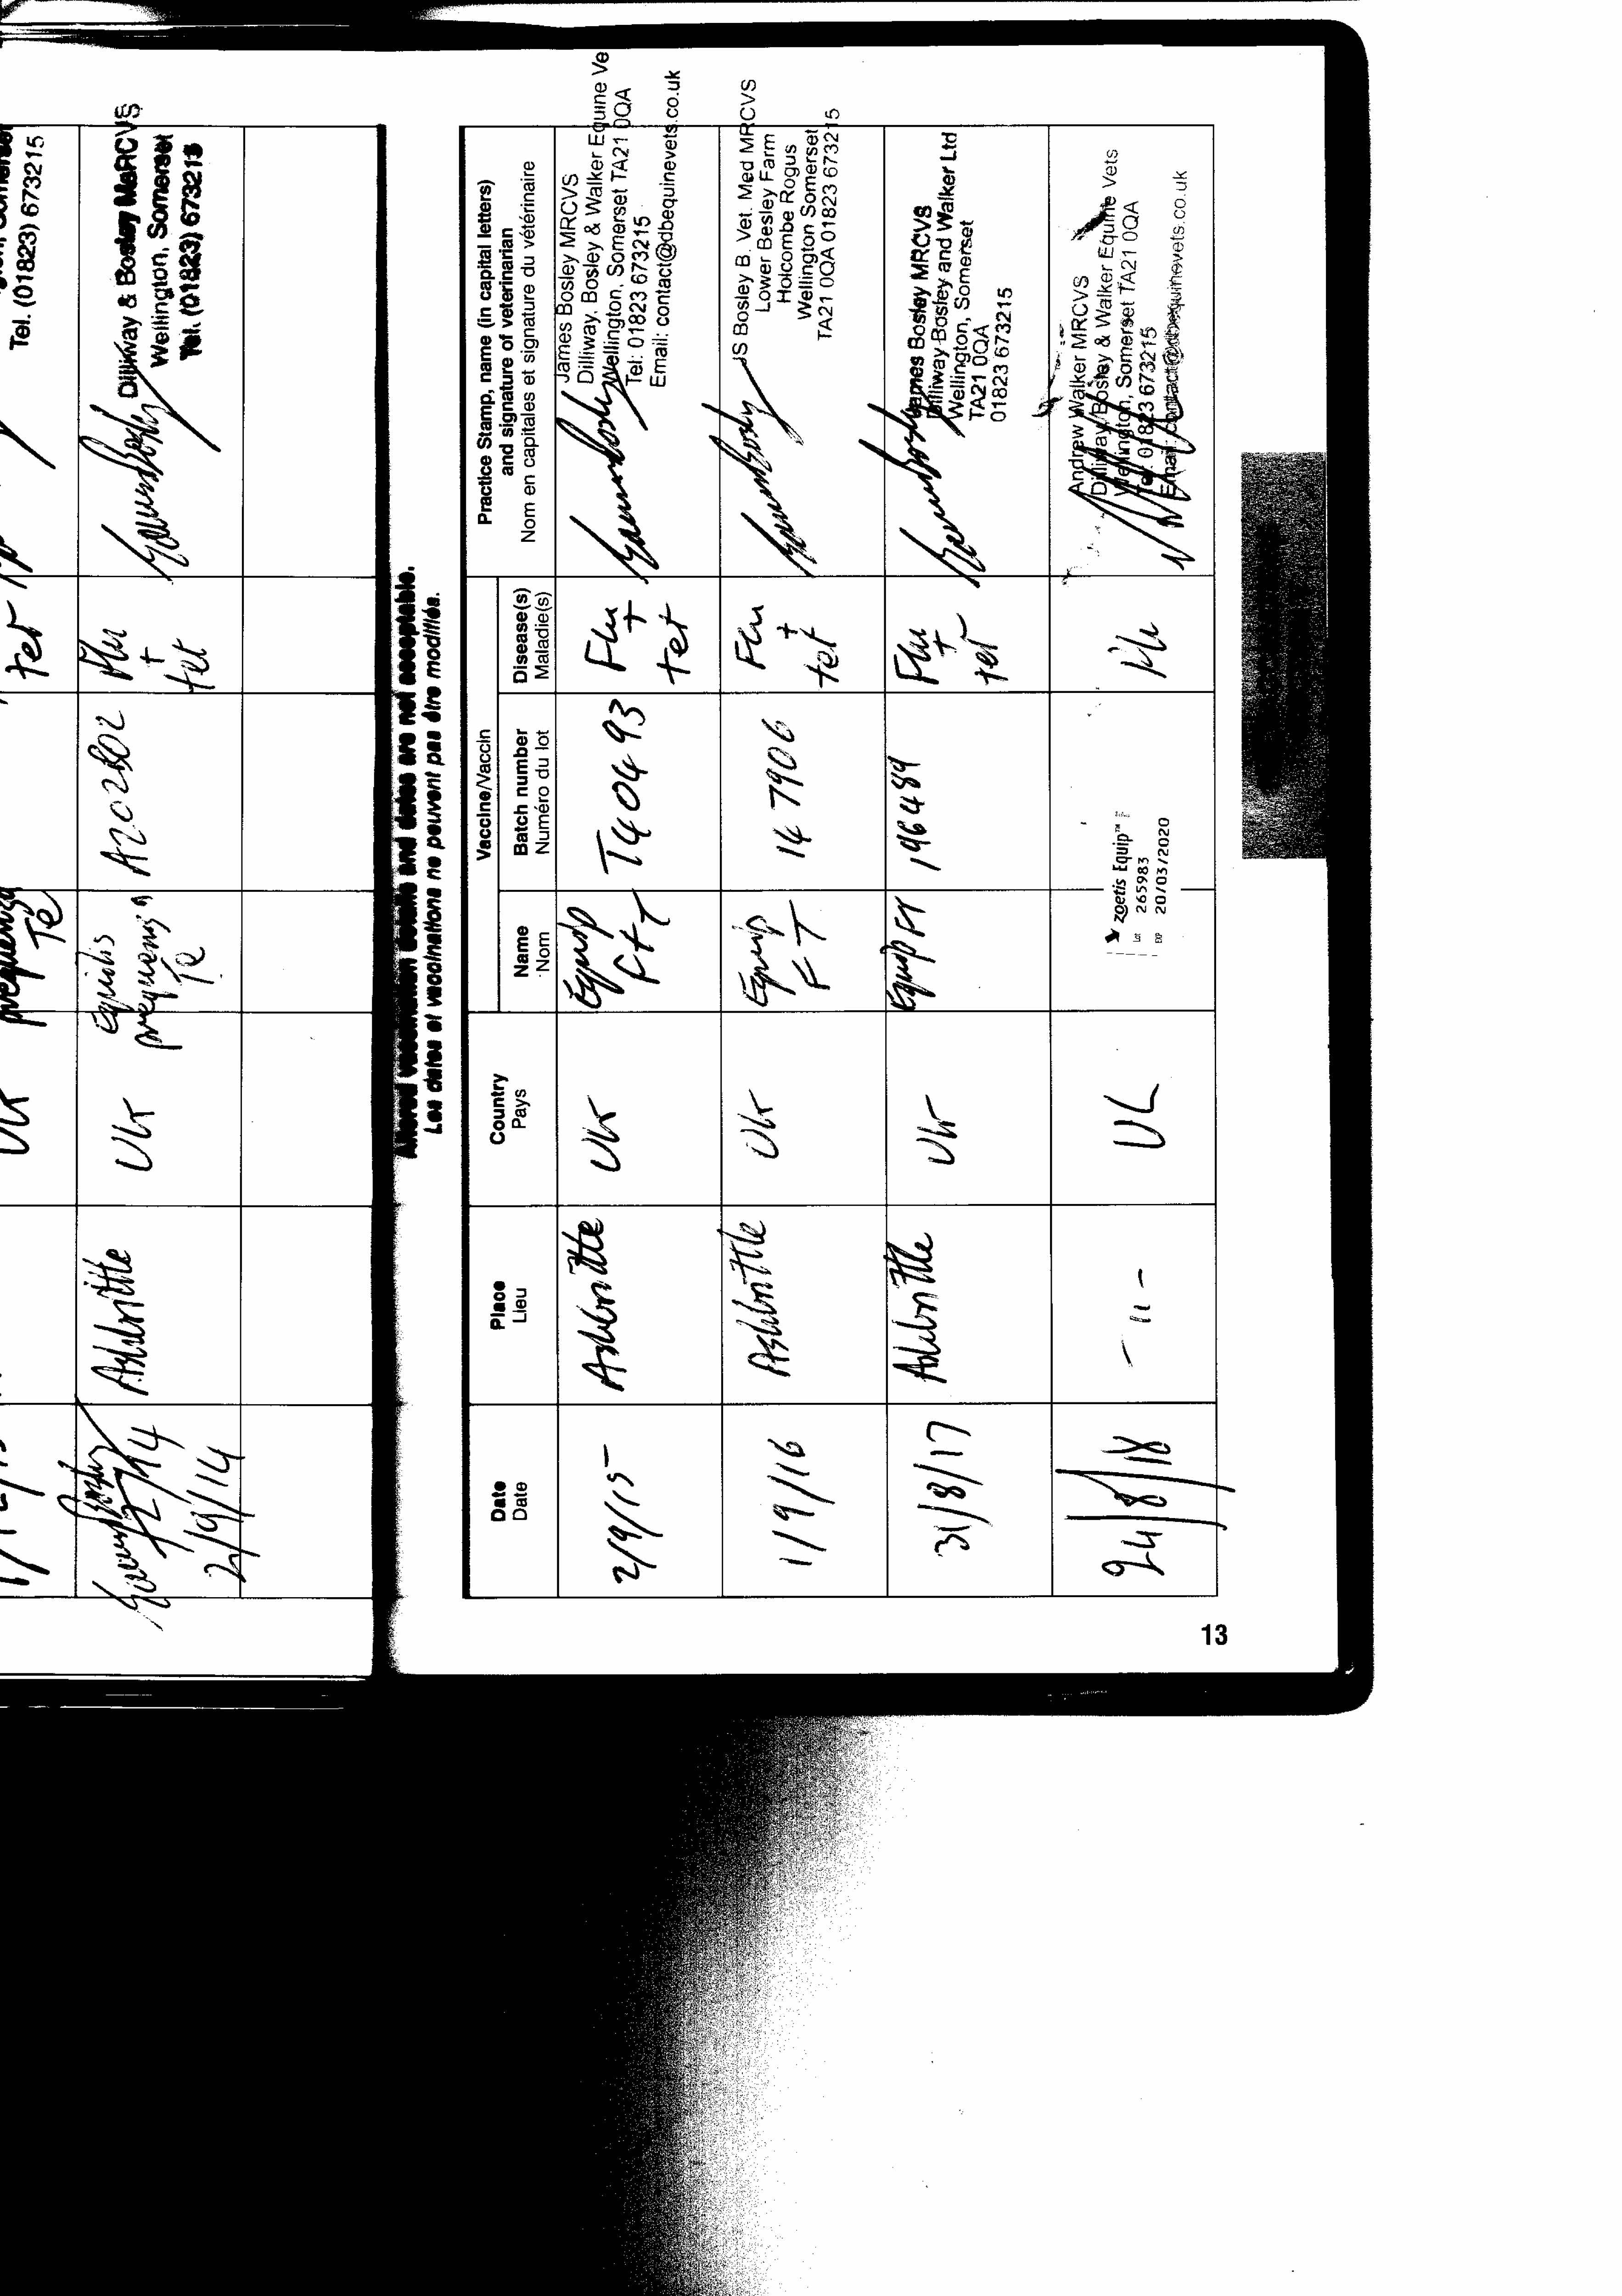 Tel. (01823) 673215
tet
UK
Te
2/9/14
Ashbrittle
UK
Equilis
prequenza
Te
A202B02
Flu
+
tet
Dilliway & Bosley MRCVS
Wellington, Somerset
Tel. (01823) 673215
Altered vaccination details and dates are not acceptable.
Les dates et vaccinations ne peuvent pas être modifiés.
Date
Date
Place
Lieu
Country
Pays
Vaccine/Vaccin
Name
Nom
Batch number
Numéro du lot
Disease(s)
Maladie(s)
Practice Stamp, name (in capital letters)
and signature of veterinarian
Nom en capitales et signature du vétérinaire
2/9/15
Ashbrittle
UK
Equip
F+T
T40493
Flu
+
tet
James Bosley MRCVS
Dilliway, Bosley & Walker Equine Ve
Wellington, Somerset TA21 0QA
Tel: 01823 673215
Email: contact@dbequinevets.co.uk
1/9/16
Ashbrittle
UK
Equip
FT
147906
Flu
+
tet
JS Bosley B. Vet. Med MRCVS
Lower Besley Farm
Holcombe Rogus
Wellington Somerset
TA21 0QA 01823 673215
31/8/17
Ashbrittle
UK
Equip FT
196489
Flu
+
tet
James Bosley MRCVS
Dilliway Bosley and Walker Ltd
Wellington, Somerset
TA21 0QA
01823 673215
24/8/18
- 11 -
UK
zoetis Equip™ F
Lot 265983
EXP 20/03/2020
Flu
Andrew Walker MRCVS
Dilliway, Bosley & Walker Equine Vets
Wellington, Somerset TA21 0QA
Tel: 01823 673215
Email: contact@dbequinevets.co.uk
13